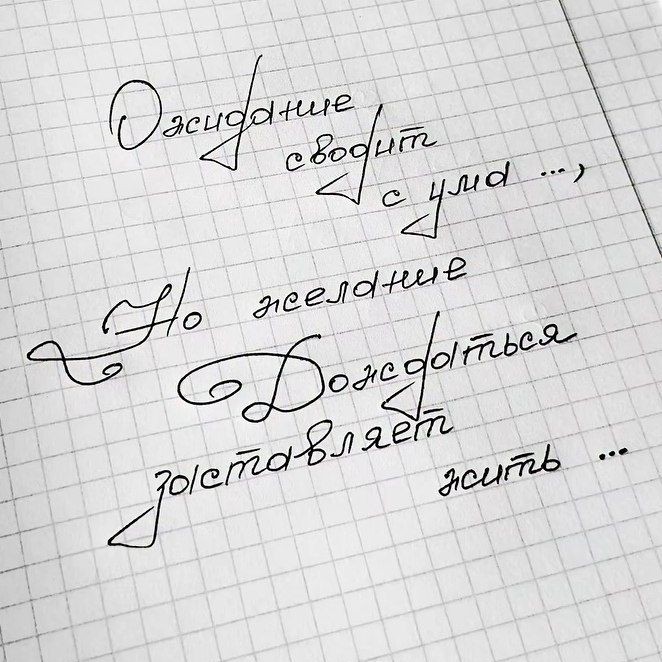 Ожидание
сводит
с ума ...,
Но желание
Дождаться
заставляет
жить ...